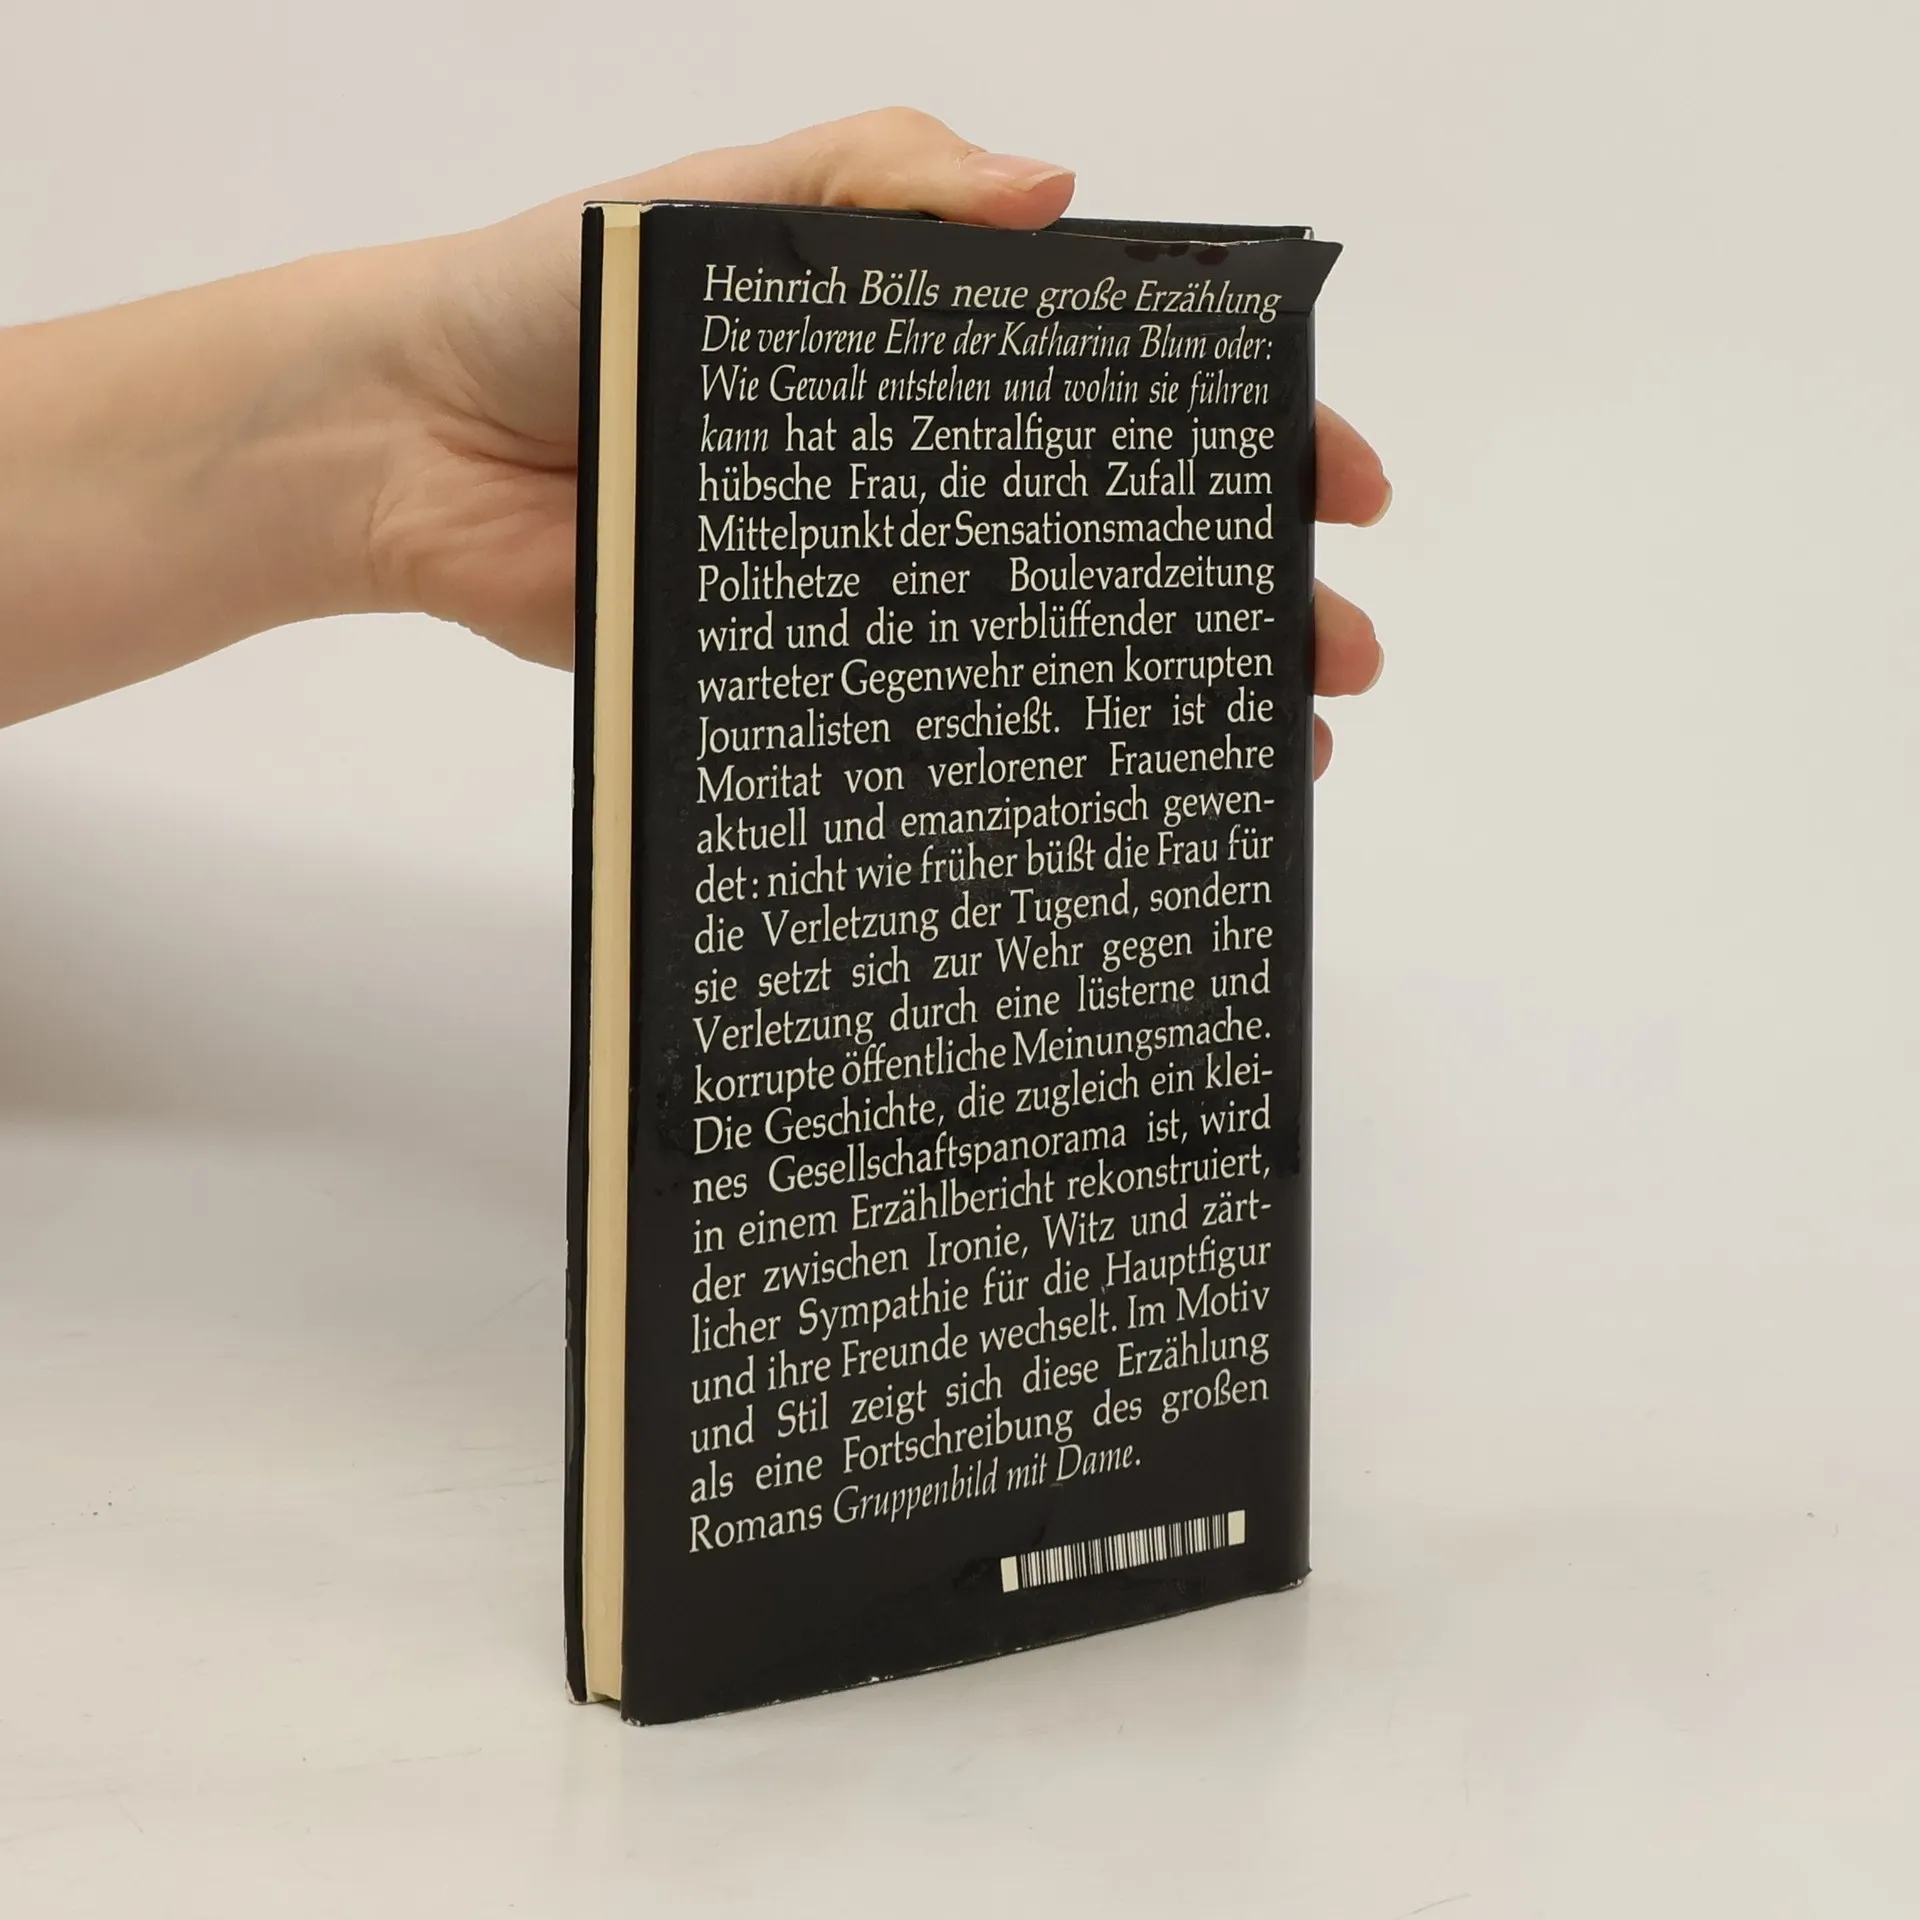 Heinrich Bölls neue große Erzählung
Die verlorene Ehre der Katharina Blum oder:
Wie Gewalt entstehen und wohin sie führen
kann hat als Zentralfigur eine junge
hübsche Frau, die durch Zufall zum
Mittelpunkt der Sensationsmache und
Polithetze einer Boulevardzeitung
wird und die in verblüffender uner-
warteter Gegenwehr einen korrupten
Journalisten erschießt. Hier ist die
Moritat von verlorener Frauenehre
aktuell und emanzipatorisch gewen-
det: nicht wie früher büßt die Frau für
die Verletzung der Tugend, sondern
sie setzt sich zur Wehr gegen ihre
Verletzung durch eine lüsterne und
korrupte öffentliche Meinungsmache.
Die Geschichte, die zugleich ein klei-
nes Gesellschaftspanorama ist, wird
in einem Erzählbericht rekonstruiert,
der zwischen Ironie, Witz und zärt-
licher Sympathie für die Hauptfigur
und ihre Freunde wechselt. Im Motiv
und Stil zeigt sich diese Erzählung
als eine Fortschreibung des großen
Romans Gruppenbild mit Dame.